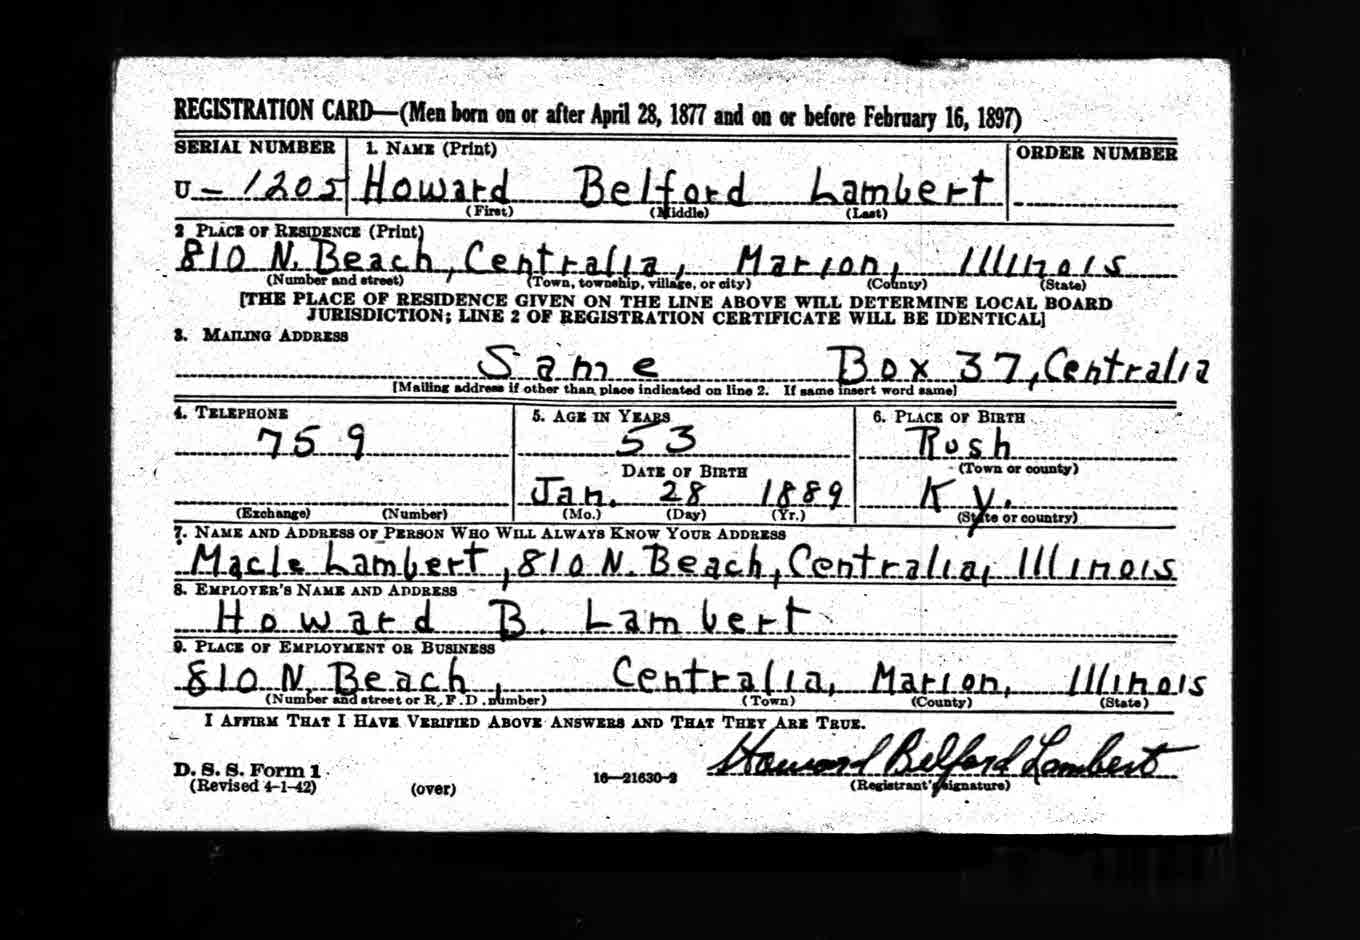 REGISTRATION CARD—(Men born on or after April 28, 1877 and on or before February 16, 1897)
SERIAL NUMBER 1. NAME (Print) ORDER NUMBER
U - 1205 Howard Belford Lambert
(First) (Middle) (Last)
2 PLACE OF RESIDENCE (Print)
810 N. Beach, Centralia, Marion, Illinois
(Number and street) (Town, township, village, or city) (County) (State)
[THE PLACE OF RESIDENCE GIVEN ON THE LINE ABOVE WILL DETERMINE LOCAL BOARD
JURISDICTION; LINE 2 OF REGISTRATION CERTIFICATE WILL BE IDENTICAL]
3. MAILING ADDRESS
Same Box 37, Centralia
[Mailing address if other than place indicated on line 2. If same insert word same]
4. TELEPHONE 5. AGE IN YEARS 6. PLACE OF BIRTH
759 53 Rush
DATE OF BIRTH (Town or county)
Jan. 28 1889 Ky.
(Exchange) (Number) (Mo.) (Day) (Yr.) (State or country)
7. NAME AND ADDRESS OF PERSON WHO WILL ALWAYS KNOW YOUR ADDRESS
Macle Lambert, 810 N. Beach, Centralia, Illinois
8. EMPLOYER'S NAME AND ADDRESS
Howard B. Lambert
9. PLACE OF EMPLOYMENT OR BUSINESS
810 N. Beach, Centralia, Marion, Illinois
(Number and street or R. F. D. number) (Town) (County) (State)
I AFFIRM THAT I HAVE VERIFIED ABOVE ANSWERS AND THAT THEY ARE TRUE.
Howard Belford Lambert
D. S. S. Form 1
(Revised 4-1-42) (over) 16—21630-2 (Registrant's signature)